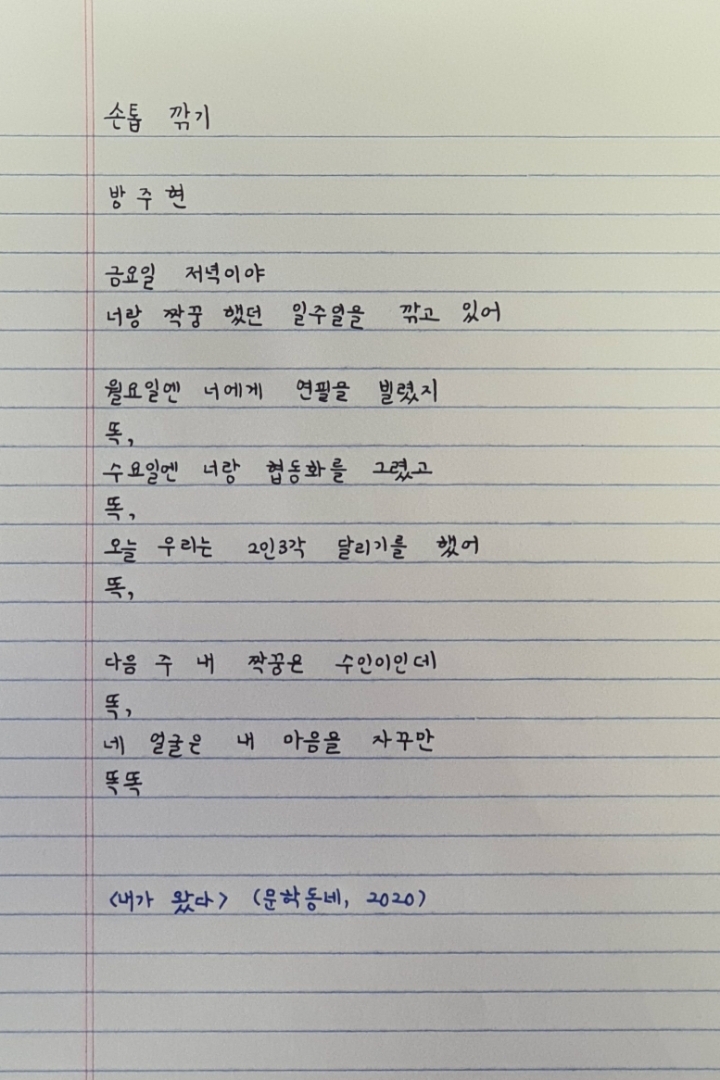 손톱 깎기
방주현
금요일 저녁이야
너랑 짝꿍 했던 일주일을 깎고 있어
월요일엔 너에게 연필을 빌렸지
똑,
수요일엔 너랑 협동화를 그렸고
똑,
오늘 우리는 2인3각 달리기를 했어
똑,
다음 주 내 짝꿍은 수인이인데
똑,
네 얼굴은 내 마음을 자꾸만
똑똑
<내가 왔다> (문학동네, 2020)